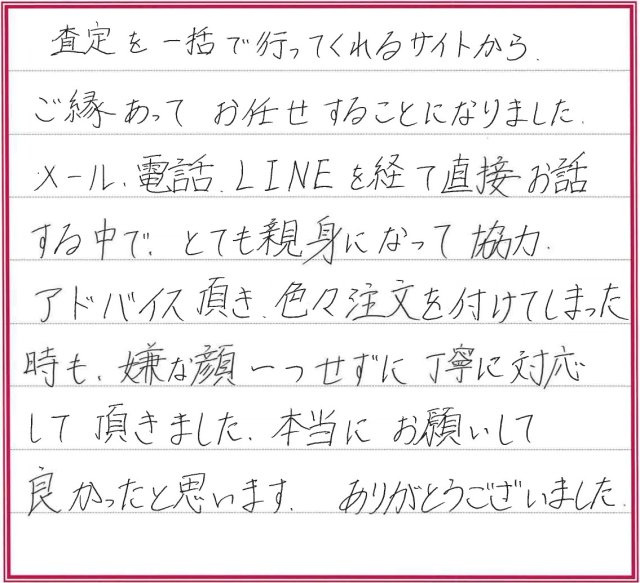 査定を一括で行ってくれるサイトから、
ご縁あって お任せすることになりました。
メール、電話、LINEを経て直接お話
する中で、とても親身になって協力、
アドバイス頂き、色々注文を付けてしまった
時も、嫌な顔一つせずに丁寧に対応
して頂きました。本当に お願いして
良かったと思います。 ありがとうございました。